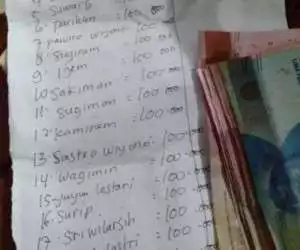 5 Suwarti
6 parikem : 100 000
7 pawiro wiyono 100 000
8 Sagiram 100 000
9. Idem 100 000
10 Sakiman = 100.000
11. Sugiman = 100.000
12. Kaminem = 100.000
13. Sastro wiyono : 100.000
14. Wagimin = 100.000
15. lestari : 100.000
16. Surip : 100.000
17. Sri wilarsih : 100.000
lestri : 100